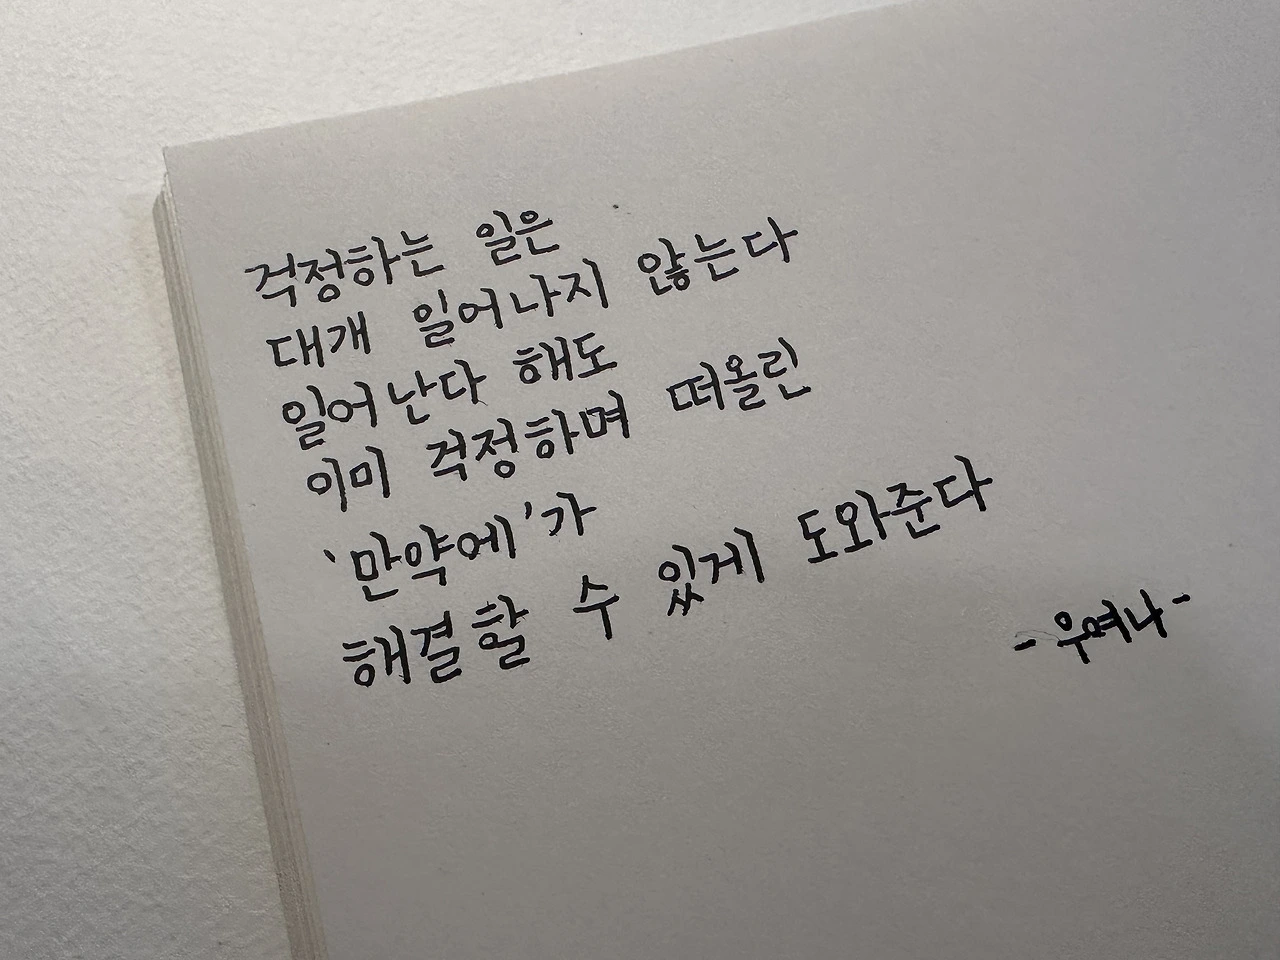 걱정하는 일은
대개 일어나지 않는다
일어난다 해도
이미 걱정하며 떠올린
'만약에'가
해결할 수 있게 도와준다
-우여나-